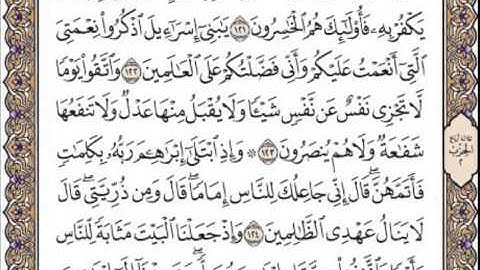 يَكۡفُرۡ بِهِۦ فَأُوْلَٰٓئِكَ هُمُ ٱلۡخَٰسِرُونَ ١٢١ يَٰبَنِيٓ إِسۡرَٰٓءِيلَ ٱذۡكُرُواْ نِعۡمَتِيَ
ٱلَّتِيٓ أَنۡعَمۡتُ عَلَيۡكُمۡ وَأَنِّي فَضَّلۡتُكُمۡ عَلَى ٱلۡعَٰلَمِينَ ١٢٢ وَٱتَّقُواْ يَوۡمٗا
لَّا تَجۡزِي نَفۡسٌ عَن نَّفۡسٖ شَيۡـٔٗا وَلَا يُقۡبَلُ مِنۡهَا عَدۡلٞ وَلَا تَنفَعُهَا
شَفَٰعَةٞ وَلَا هُمۡ يُنصَرُونَ ١٢٣ ۞ وَإِذِ ٱبۡتَلَىٰٓ إِبۡرَٰهِـۧمَ رَبُّهُۥ بِكَلِمَٰتٖ
فَأَتَمَّهُنَّۖ قَالَ إِنِّي جَاعِلُكَ لِلنَّاسِ إِمَامٗاۖ قَالَ وَمِن ذُرِّيَّتِيۖ قَالَ
لَا يَنَالُ عَهۡدِي ٱلظَّٰلِمِينَ ١٢٤ وَإِذۡ جَعَلۡنَا ٱلۡبَيۡتَ مَثَابَةٗ لِّلنَّاسِ
الحزب